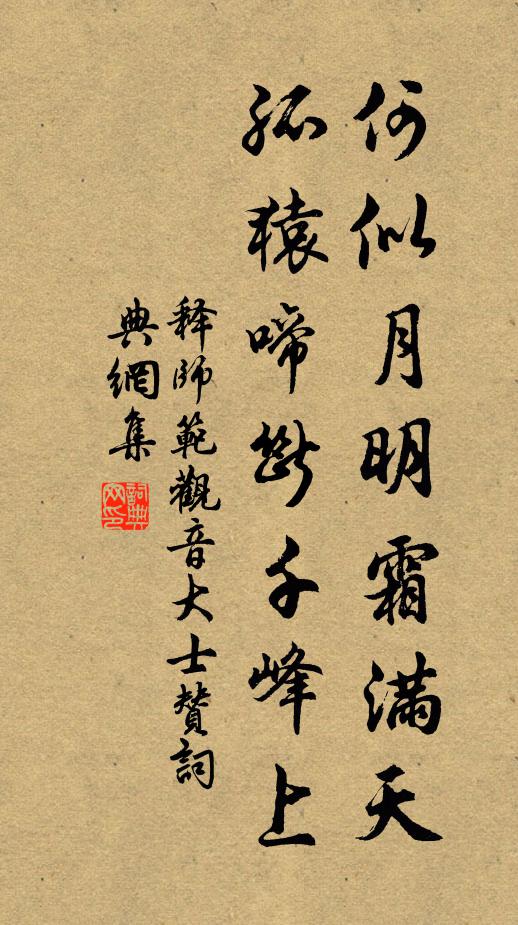 何似月明霜滿天
孤猿啼斷千峰上
釋師範觀音大士贊詞
典網集
詞典
网印